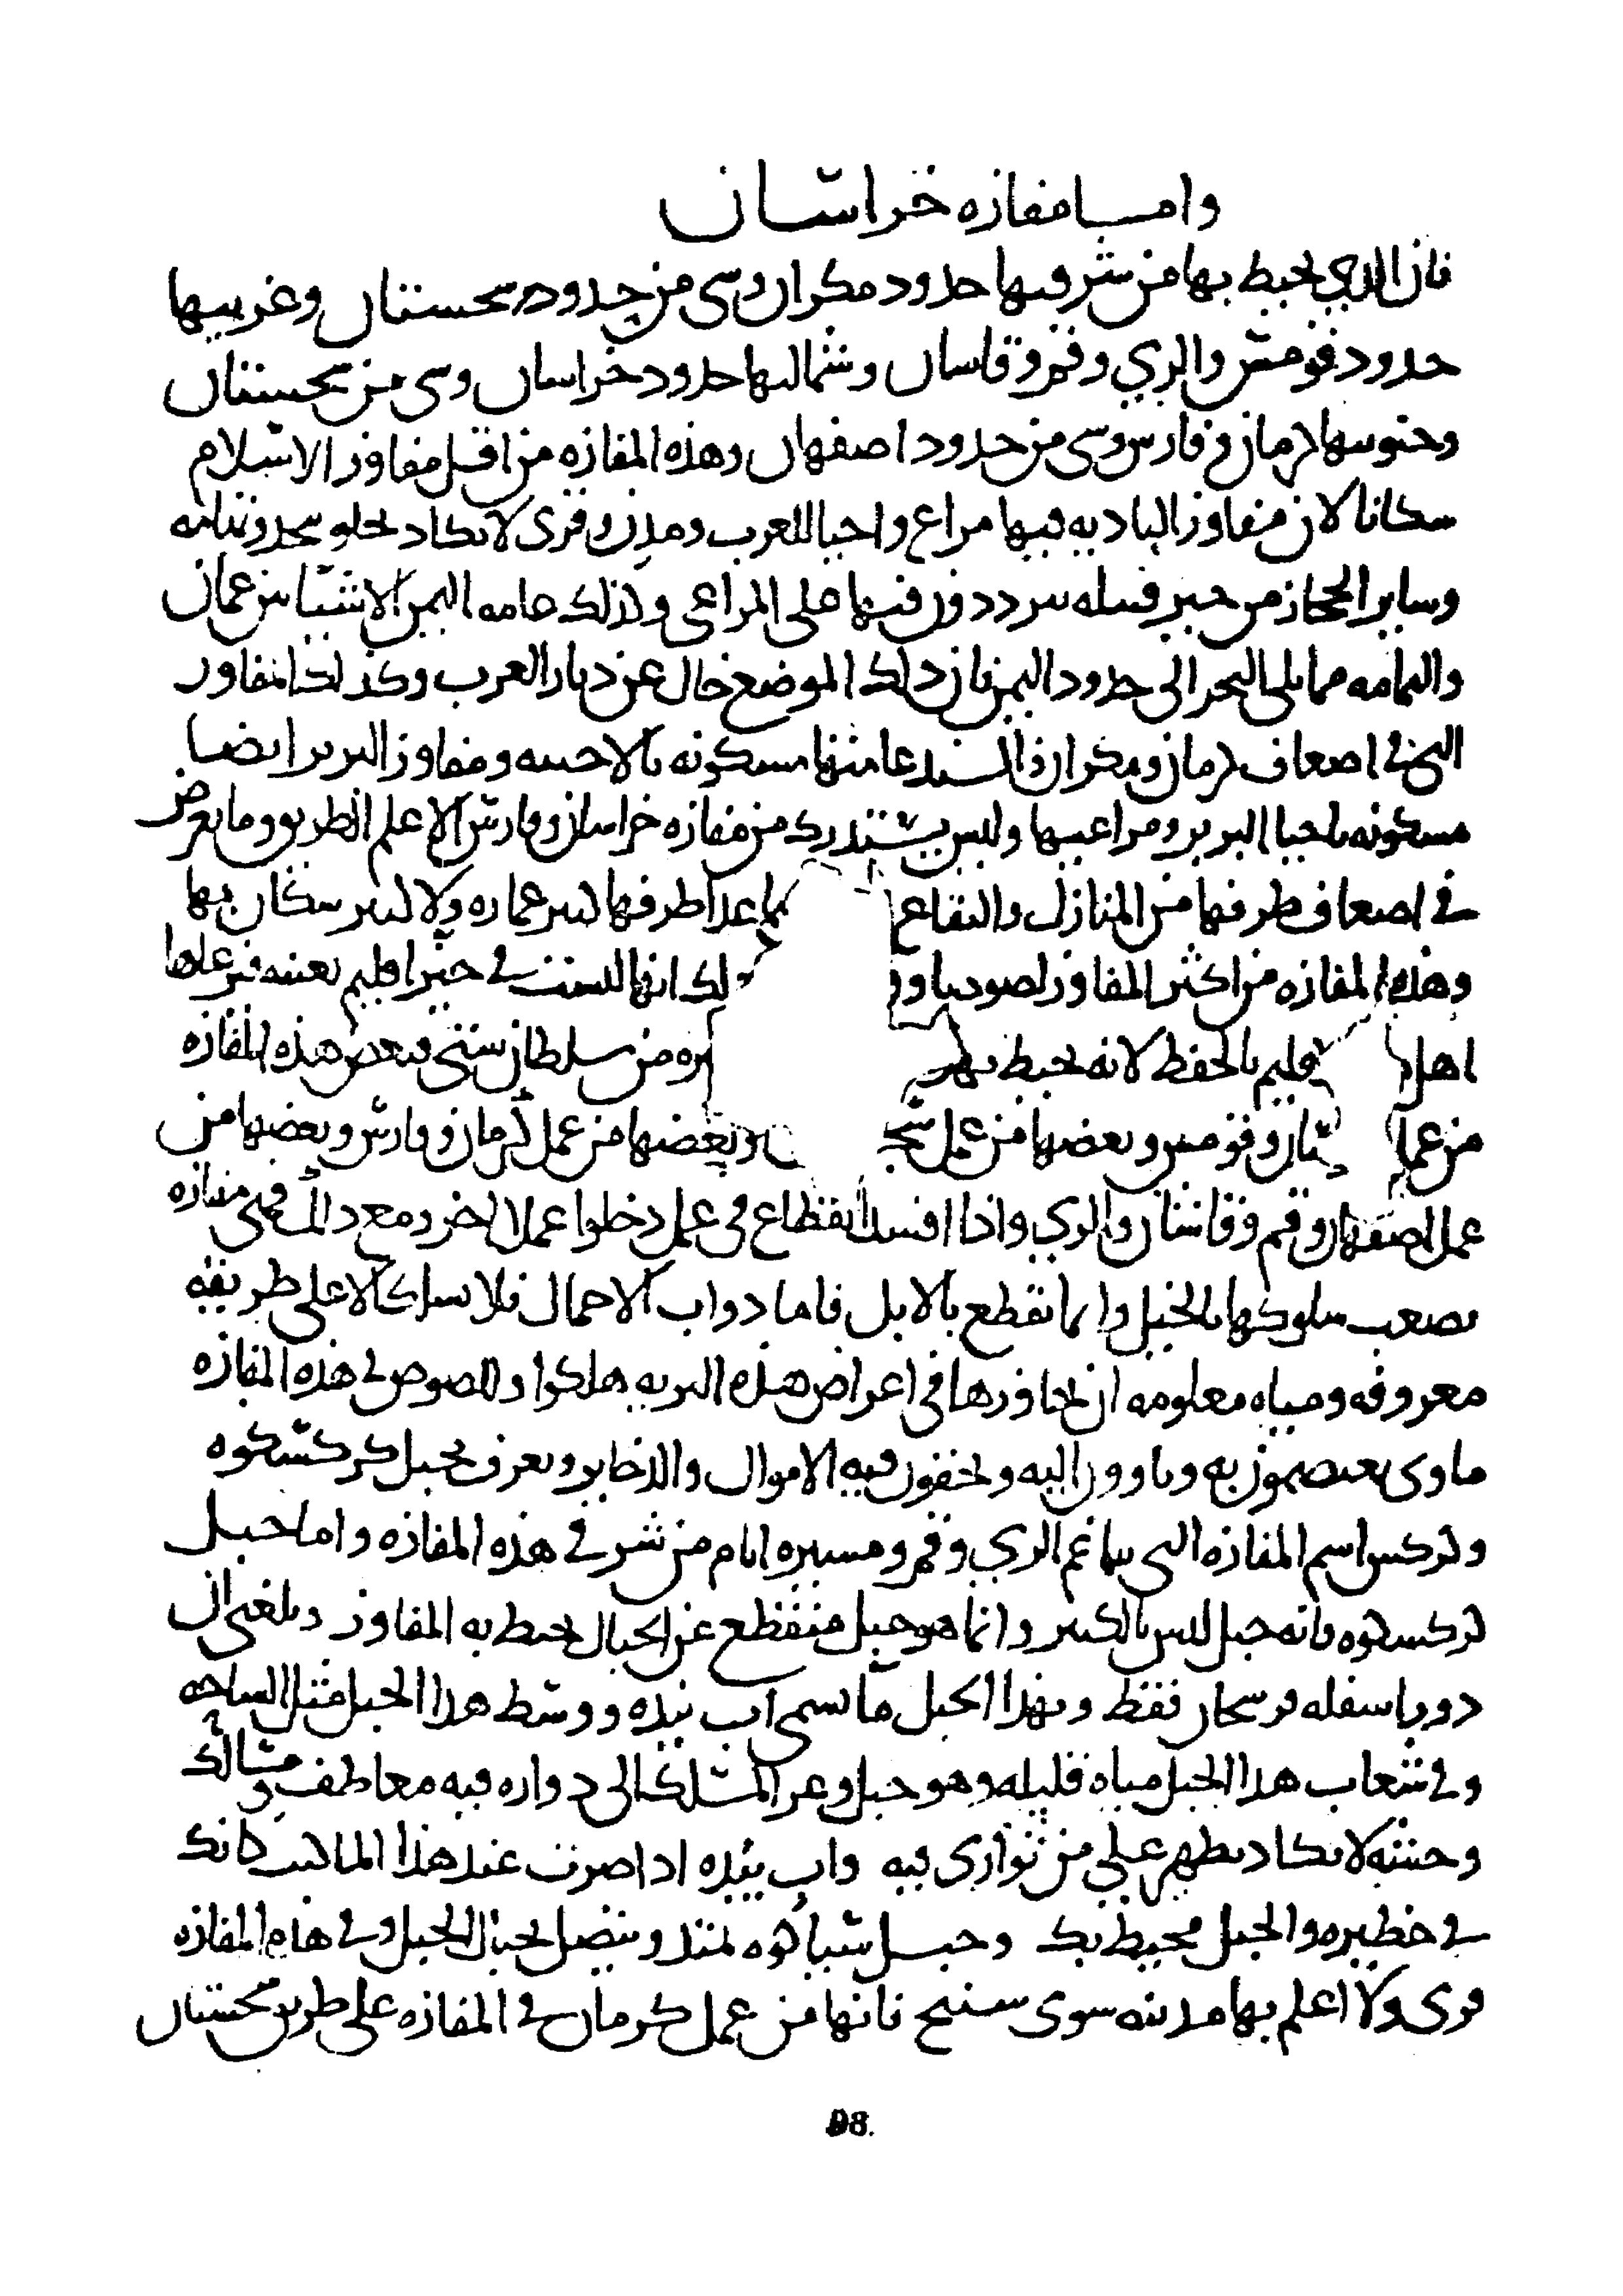 واما مفازه خراسان
فان الذي يحيط بها من شرقيها حدود مكران وشي من حدود سجستان وغربيها
حدود قومس والري وقم وقاسان وشماليها حدود خراسان وشي من سجستان
وجنوبيها كرمان وفارس وشي من حدود اصفهان وهذه المفازه من اقل مفاوز الاسلام
سكانا لان مفاوز الباديه فيها مراع واحيا للعرب ومدن وقرى لا تكاد تخلو نجد وتهامه
وساير الحجاز من حيز قبيله يترددون فيها على المراعي وكذلك عامه اليمن الا شيا بين عمان
واليمامه مما يلي البحر الى حدود اليمن فان ذلك الموضع خال عن ديار العرب وكذلك المفاوز
التي في اضعاف كرمان ومكران والسند عامتها مسكونه بالاخبيه ومفاوز البربر ايضا
مسكونه باحيا البربر ومراعيها وليس يستدرك من مفازه خراسان وفارس الا علم الطريق وما يعرض
في اضعاف طرفها من المنازل والبقاع ما عدا طرفها ليس عماره ولا لبس سكان بها
وهذه المفازه من اكثر المفاوز لصوصا و لك انها ليست في حيز اقليم بعينه فيرعاها
اهل قليم بالحفظ لانه يحيط بهـ يره من سلطان شتى فبعض هذه المفازه
من عمل سان وقومس وبعضها من عمل سجـ ن وبعضها من عمل كرمان وفارس وبعضها من
عمل اصفهان وقم وقاشان والري واذا افسد القطاع في عمل دخلوا عمل الاخر ومع ذلك فهي مفازه
يصعب سلوكها بالخيل وانما تقطع بالابل فاما دواب الاحمال فلا تسلك الا على طريقه
معروفه ومياه معلومه ان تجاوزها في اعراض هذه البريه هلكوا وللصوص في هذه المفازه
ماوى يعتصمون به وياوون اليه ويخفون فيه الاموال والذخاير ويعرف بجبل كركسكوه
وكركس اسم المفازه التي بتاخم الري وقم ومسيره ايام من شرقي هذه المفازه واما جبل
كركسكوه فانه جبل ليس بالكبير وانما هو جبل منقطع عن الجبال تحيط به المفاوز وبلغني ان
دور اسفله فرسخان فقط وبهذا الجبل ما يسمى اب بنده ووسط هذا الجبل مثل الساحه
وفي شعاب هذا الجبل مياه قليله وهو جبل وعر المسلك الى دواره فيه معاطف ومسالك
وخشنه لا يكاد يظهر على من توارى فيه واب بنده اذا صرت عند هذا الما كنت كانك
في حظيره والجبل محيط بك وجبل سياكوه يمتد ويتصل بجبال الجبل وفي هذه المفازه
قرى ولا اعلم بها مدينه سوى سنيج فانها من عمل كرمان في المفازه على طريق سجستان
98.